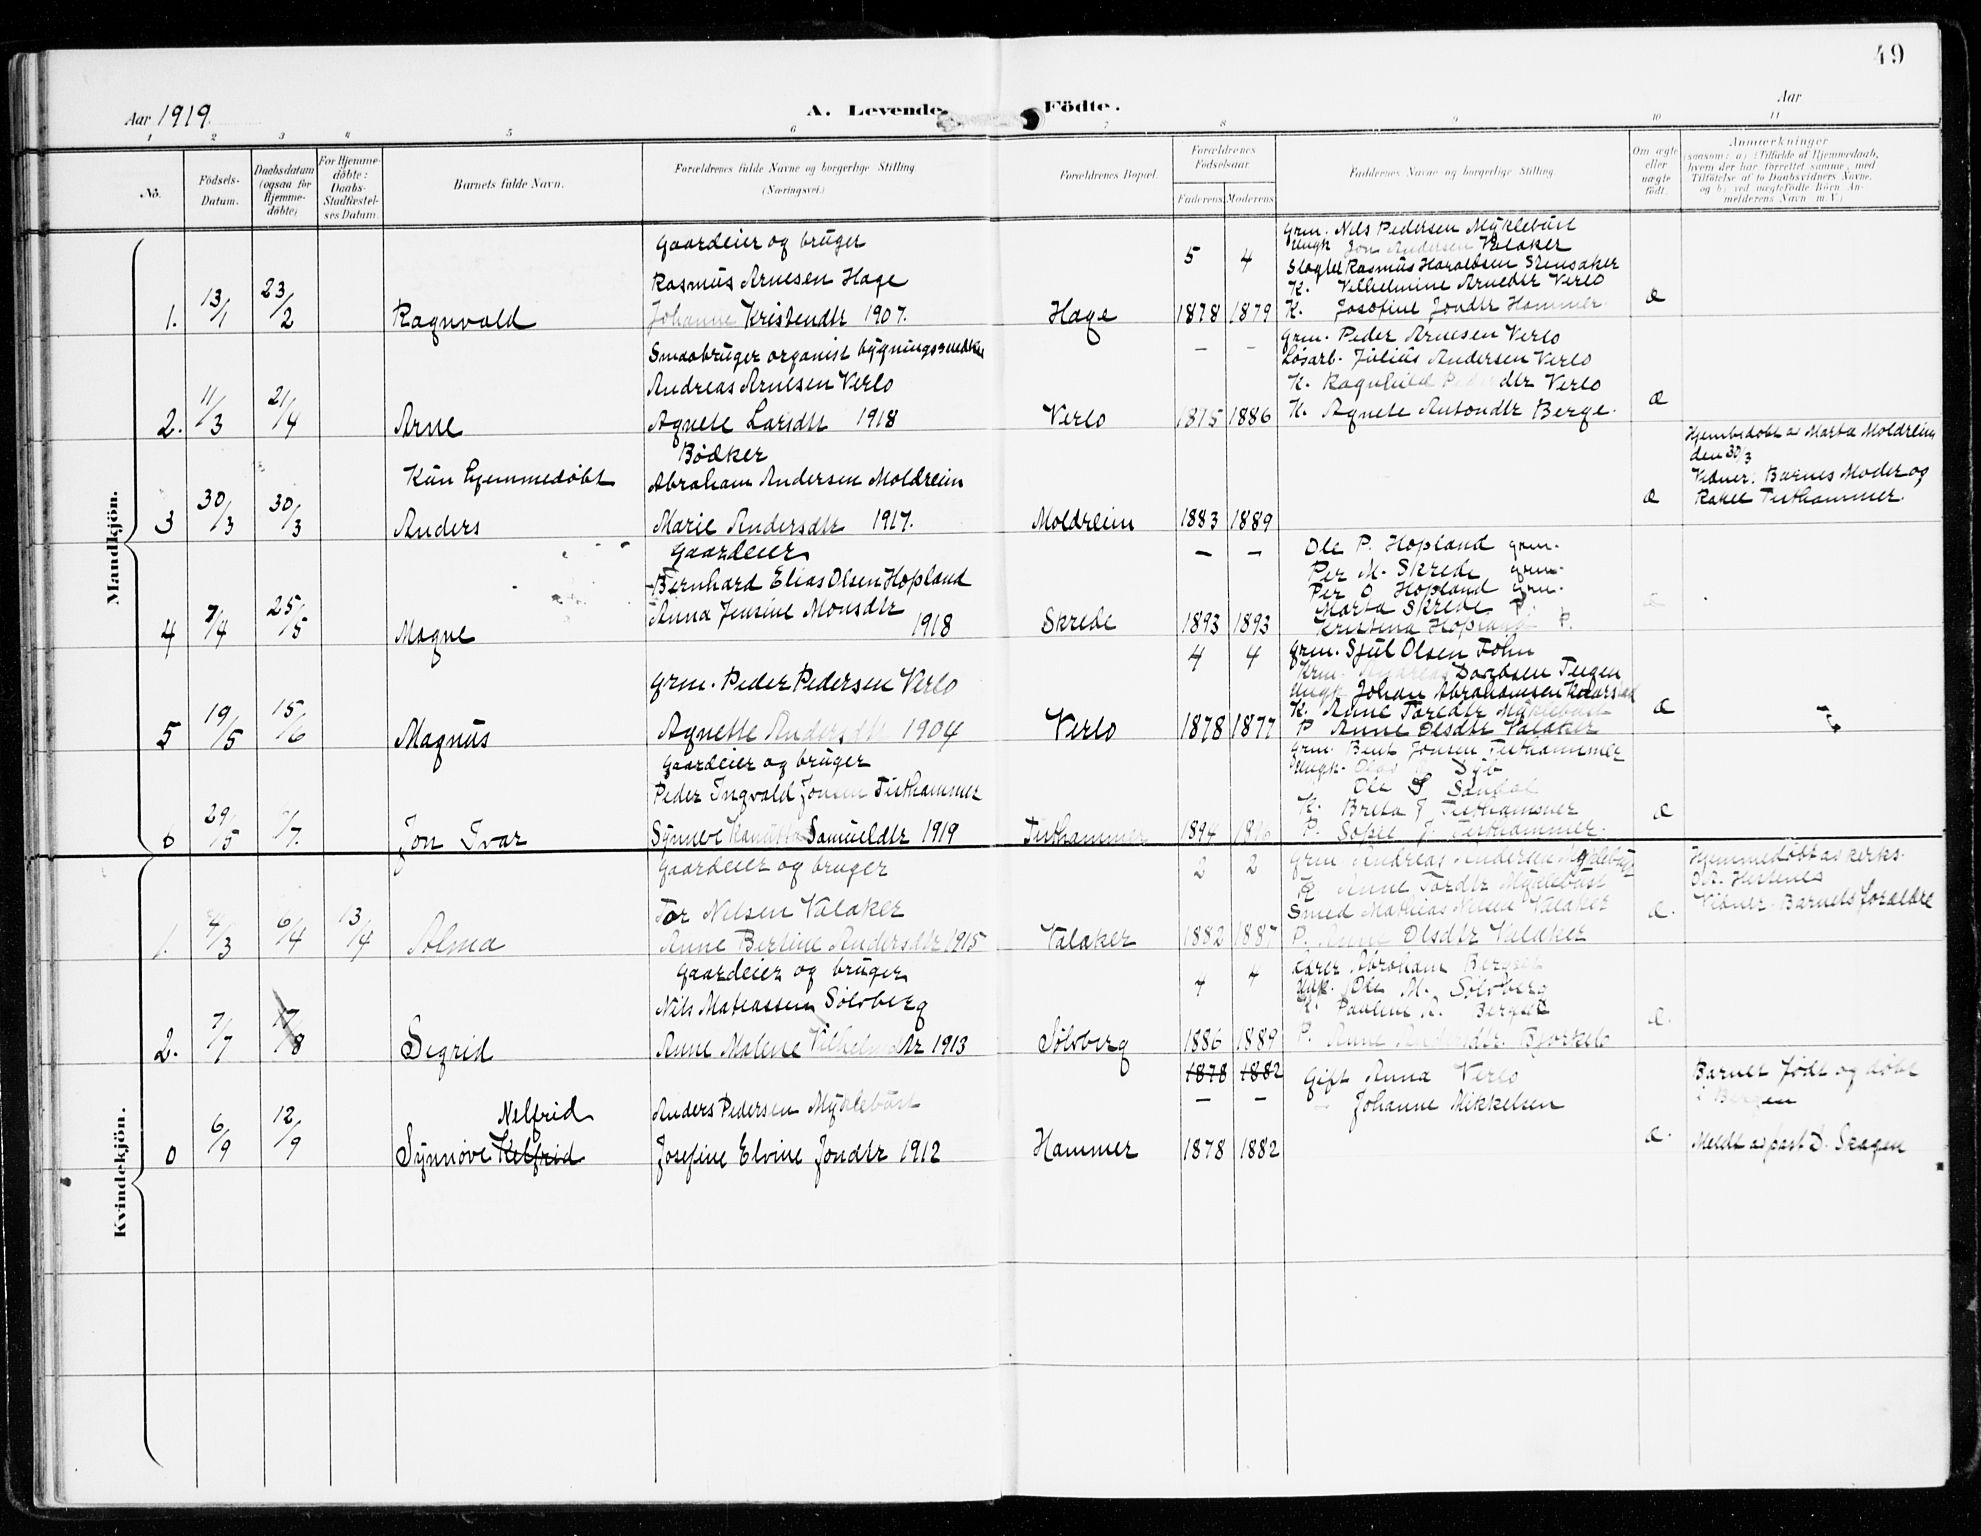 49
Aar 1919.
A. Levende Födte.
Aar
1 2 3 4 5 6 7 8 9 10 11
No.
Födsels-Datum.
Daabsdatum (ogsaa for Hjemmedöbte)
For Hjemmedöbte: Daabs-Stadfæstelses Datum.
Barnets fulde Navn.
Forældrenes fulde Navne og borgerlige Stilling (Næringsvei.)
Forældrenes Bopæl.
Forældrenes Födselsaar.
Faderens. Moderens.
Faddernes Navne og borgerlige Stilling.
Om ægte eller uægte födt.
Anmærkninger
(saasom: a) i Tilfælde af Hjemmedaab, hvem der har forrettet samme, med Tilföielse af to Daabsvidners Navne, og b) ved uægtefödte Börn Anmelderens Navn m. V.)
Mandkjön.
Gaardeier og bruger
Rasmus Arnesen Hage
1. 13/1 23/2 Ragnvald
Johanne Kristendtr 1907.
Hage
5 4
1878 1879
Grm. Nils Pedersen Myklebust
Ungk Jon Andersen Valaker
Rasmus Haraldsen Stensaker
K. Vilhelmine Arnedtr Verlo
K. Josefine Jondtr Hammer.
Æ
Smaabruger organist bygningssnedker
Andreas Arnesen Verlo
2. 11/3 21/4 Arne
Agnete Larsdtr 1918
Verlo
— —
1875 1886
Grm. Peder Arnesen Verlo
Løsarb. Julius Andersen Verlo
K. Ragnhild Pedersdtr Verlo
K. Agnete Antondtr Berge.
Æ
Bødker
Kun hjemmedøbt
Abraham Andersen Moldreim
3 30/3 30/3 Anders
Marie Andersdtr 1917.
Moldreim
1883 1889
Æ
Hjemmedøbt av Marta Moldreim
den 30/3
Vidner: Barnes Moder og
Rakel Tisthammer.
Gaardeier
Bernhard Elias Olsen Hopland
Anna Jensine Monsdtr
4 7/4 25/5 Magne
1918
Skrede
— —
1893 1893
Ole P. Hopland grm.
Per M. Skrede grm.
Per O Hopland grm.
Marta Skrede P.
Kristina Hopland P.
Grm. Peder Pedersen Verlo
5 19/5 15/6 Magnus
Agnette Andersdtr 1904
Verlo
4 4
1878 1877
Grm. Sjul Olsen Føhn
Ungk Johan Abrahamsen
K. Anne Toredtr Myklebust
P Anne Olsdtr Valaker
Æ
Gaardeier og bruger
Peder Ingvald Jonsen Tisthammer
6 29/5 /7. Jon Ivar
Synneve Samueldtr 1919
Tisthammer
1894
Grm. Bent Jonsen Tisthammer
Ungk.
Ole S Sandal
K. Brita J Tisthammer
P. Sofie J. Tisthammer.
Æ
Kvindekjön.
Gaardeier og bruger
Tor Nelsen Valaker
1. 4/3 6/4 13/4 Alma
Anne Bertine Andersdtr 1915
Valaker
2 2
1882 1887
Grm Andreas Andersen Myklebust
Anne Tordtr Myklebust
Smed Mathias Nelsen Valaker
P. Anne Olsdtr Valaker
Æ.
Hjemmedøbt av kirks.
A. Hestenes
Vidner. Barnets forældre
Gaardeier og bruger
Nils Matiassen Sølvberg
2. 7/7 17/8 Sigrid
Anne Malene Vilhelmdtr 1913
Sølvberg
4 4
1886 1889
Abraham Bergset
Ungk. Ole M. Sølvberg
K. Pauline A. Bergset
P. Anne Andersdtr. Bjørkelo
Æ.
1878 1882
— —
Nelfrid
Anders Pedersen Myklebust
0 6/9 12/9 Synnøve Kelfrid
Josefine Elvine Jondtr 1912
Hammer
1878 1882
Gift Anna Verlo
— Johanne Mikkelsen
Æ.
Barnet født og døbt
i Bergen
Meldt av past D. Skagen